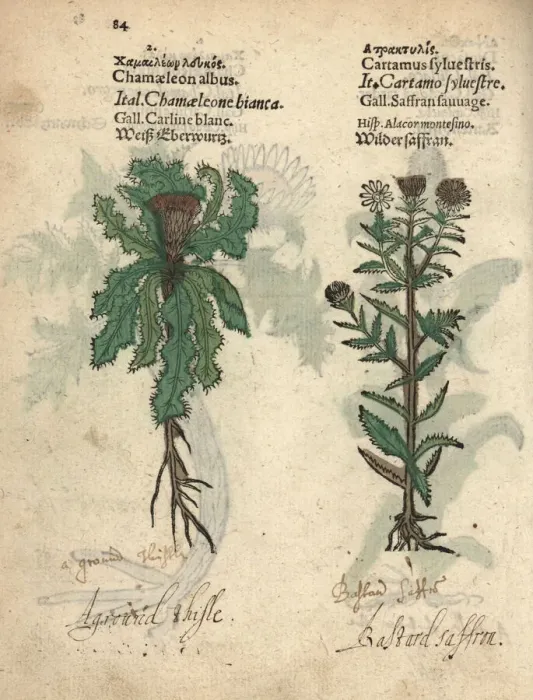 84
2.
Χαμαιλέων λευκός.
Chamæleon albus.
Ital. Chamæleone bianca.
Gall. Carline blanc.
Weiß Eberwurtz.
Ατρακτυλίς.
Cartamus syluestris.
It. Cartamo syluestre.
Gall. Saffran sauuage.
Hisp. Alacor montesino.
Wilder saffran.
a ground thistle
Aground thisle.
Bastard saffron.